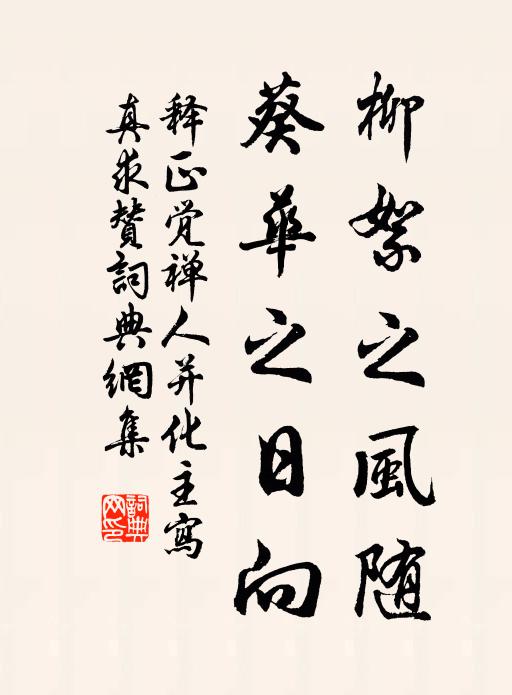 柳絮之風随
葵華之日向
释正觉禅人并化主寫
真求賛詞典網集
詞典
网印